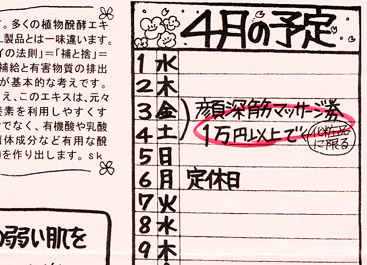 す。多くの植物醗酵エキ
製品とは一味違います。
イの法則」=「補と捨」=
補給と有害物質の排出
が基本的な考えです。
え、このエキスは、元々
養素を利用しやすくす
でなく、有機酸や乳酸
体成分など有用な醗
を作り出します。sk
の弱い肌を
4月の予定
1 水
2 木
3 金 顔深筋マッサージ券
4 土 1万円以上で
に限る
5 日
6 月 定休日
7 火
8 水
9 木